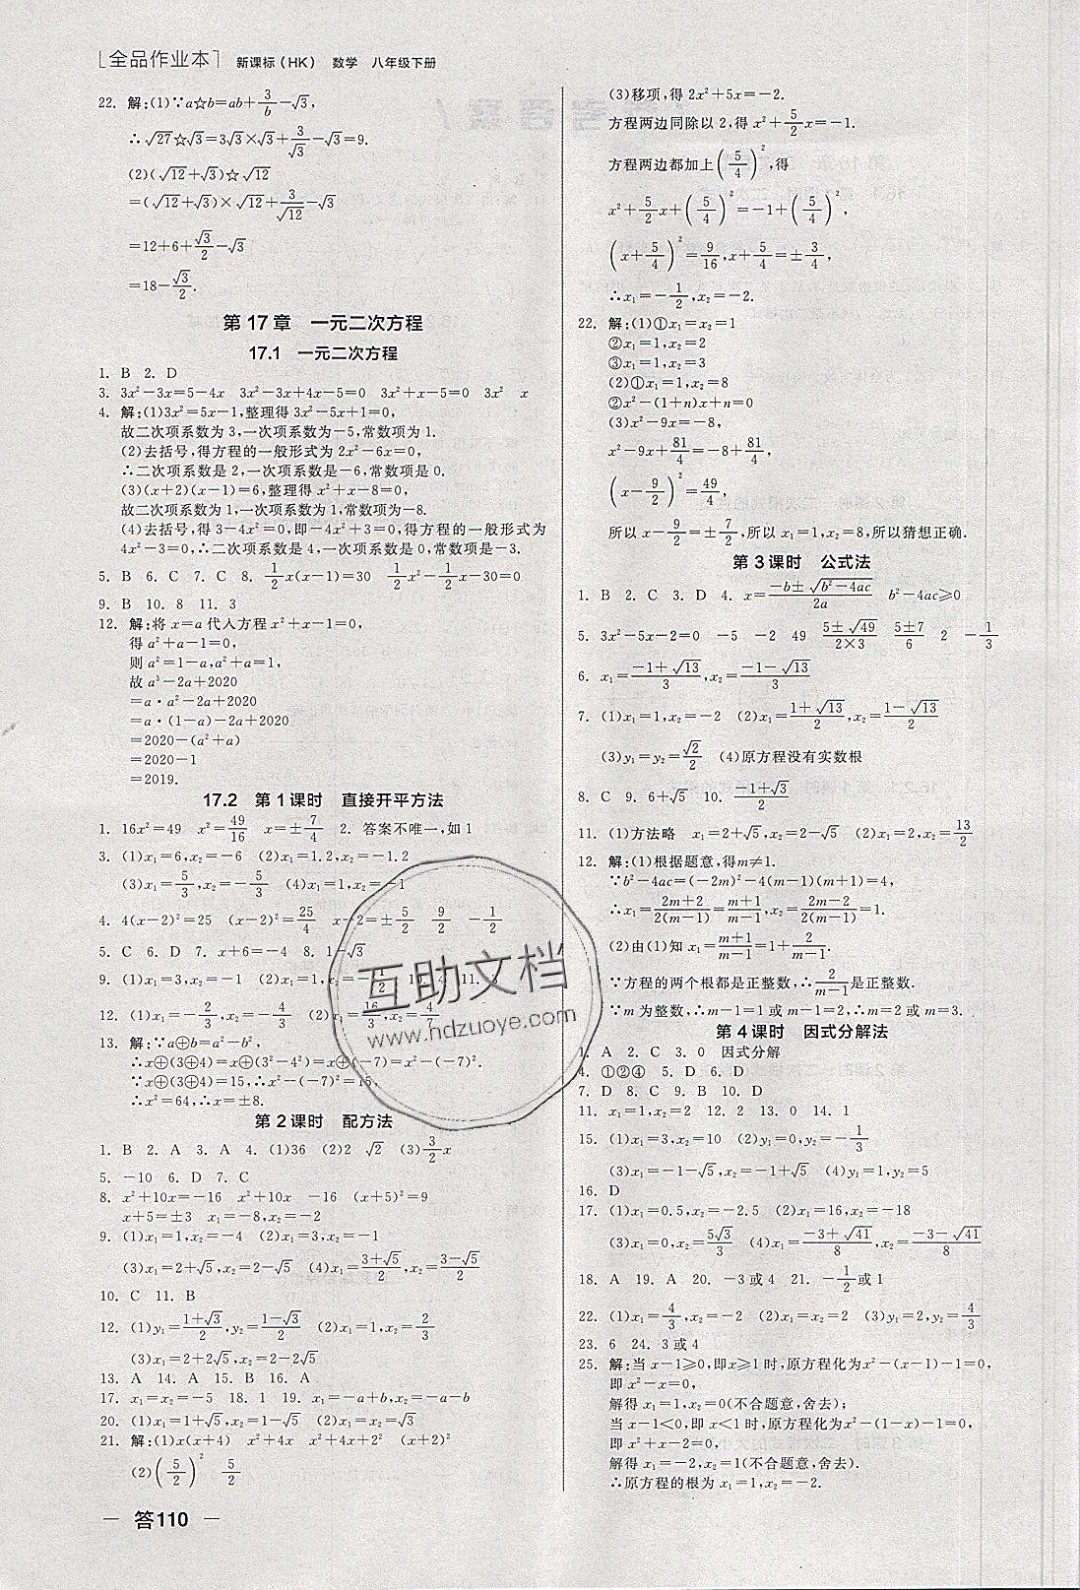 [全品作业本] 新课标(HK) 数学 八年级下册
22. 解:(1)∵a☆b=ab+3/b-√3,
∴√27☆√3=3√3×√3+3/√3-√3=9.
(2)(√12+√3)☆√12
=(√12+√3)×√12+3/√12-√3
=12+6+√3/2-√3
=18-√3/2.
第17章 一元二次方程
17.1 一元二次方程
1. B 2. D
3. 3x²-3x=5-4x 3x²-3x+4x-5=0 3x²+x-5=0 3x² x
4. 解:(1)3x²=5x-1,整理得3x²-5x+1=0,
故二次项系数为3,一次项系数为-5,常数项为1.
(2)去括号,得方程的一般形式为2x²-6x=0,
∴二次项系数是2,一次项系数是-6,常数项是0.
(3)(x+2)(x-1)=6,整理得x²+x-8=0,
故二次项系数为1,一次项系数为1,常数项为-8.
(4)去括号,得3-4x²=0,即-4x²+3=0,得方程的一般形式为
4x²-3=0,∴二次项系数是4,一次项系数是0,常数项是-3.
5. B 6. C 7. C 8. 1/2x(x-1)=30 1/2x²-1/2x-30=0
9. B 10. 8 11. 3
12. 解:将x=a代入方程x²+x-1=0,
得a²+a-1=0,
则a²=1-a,a²+a=1.
故a³-2a+2020
=a·a²-2a+2020
=a·(1-a)-2a+2020
=2020-(a²+a)
=2020-1
=2019.
17.2 第1课时 直接开平方法
1. 16x²=49 x²=49/16 x=±7/4 2. 答案不唯一,如1
3. (1)x₁=6,x₂=-6 (2)x₁=1.2,x₂=-1.2
(3)x₁=5/3,x₂=-5/3 (4)x₁=1,x₂=-1
4. 4(x-2)²=25 (x-2)²=25/4 x-2=±5/2 9/2 -1/2
5. C 6. D 7. x+6=-4 8. 1-√3
9. (1)x₁=3,x₂=-1 (2)x₁=1,x₂=-1/2 10. 4 11. 3
12. (1)x₁=-2/3,x₂=-6 (2)x₁=16/3,x₂=4/7
13. 解:∵a⊕b=a²-b²,
∴x⊕(3⊕4)=x⊕(3²-4²)=x⊕(-7)=x²-(-7)².
∵x⊕(3⊕4)=15,∴x²-(-7)²=15,
∴x²=64,∴x=±8.
第2课时 配方法
1. B 2. A 3. A 4. (1)36 (2)2 √2 (3)3/2x
5. -10 6. D 7. C
8. x²+10x=-16 x²+10x -16 (x+5)²=9
x+5=±3 x₁=-8,x₂=-2
9. (1)x₁=1,x₂=-4 (2)x₁=3,x₂=-1
(3)x₁=2+√5,x₂=2-√5 (4)x₁=(3+√5)/2,x₂=(3-√5)/2
10. C 11. B
12. (1)y₁=(1+√3)/2,y₂=(1-√3)/2 (2)x₁=1,x₂=2/3
(3)x₁=2+2√5,x₂=2-2√5
13. A 14. A 15. B 16. A
17. x₁=x₂=-5 18. 1 19. x₁=-a+b,x₂=-a-b
20. (1)x₁=1+√5,x₂=1-√5 (2)x₁=3,x₂=1
21. 解:(1)x(x+4) x²+4x x²+4x x²+4x (x+2)²
(2)(5/2)² 5/2
— 答110 —
(3)移项,得2x²+5x=-2.
方程两边同除以2,得x²+5/2x=-1.
方程两边都加上(5/4)²,得
x²+5/2x+(5/4)²=-1+(5/4)²,
(x+5/4)²=9/16,x+5/4=±3/4,
∴x₁=-1/2,x₂=-2.
22. 解:(1)①x₁=x₂=1
②x₁=1,x₂=2
③x₁=1,x₂=3
(2)①x₁=1,x₂=8
②x²-(1+n)x+n=0
(3)x²-9x=-8,
x²-9x+81/4=-8+81/4,
(x-9/2)²=49/4,
所以x-9/2=±7/2,所以x₁=1,x₂=8,所以猜想正确.
第3课时 公式法
1. B 2. C 3. D 4. x=(-b±√(b²-4ac))/2a b²-4ac≥0
5. 3x²-5x-2=0 -5 -2 49 (5±√49)/(2×3) (5±7)/6 2 -1/3
6. x₁=(-1+√13)/3,x₂=(-1-√13)/3
7. (1)x₁=1,x₂=-2 (2)x₁=(1+√13)/2,x₂=(1-√13)/2
(3)y₁=y₂=√2/2 (4)原方程没有实数根
8. C 9. 6+√5 10. (-1+√3)/2
11. (1)方法略 x₁=2+√5,x₂=2-√5 (2)x₁=2,x₂=13/2
12. 解:(1)根据题意,得m≠1.
∵b²-4ac=(-2m)²-4(m-1)(m+1)=4,
∴x₁=(2m+2)/(2(m-1))=(m+1)/(m-1),x₂=(2m-2)/(2(m-1))=1.
(2)由(1)知x₁=(m+1)/(m-1)=1+2/(m-1).
∵方程的两个根都是正整数,∴2/(m-1)是正整数.
∵m为整数,∴m-1=1或m-1=2,∴m=2或m=3.
第4课时 因式分解法
1. A 2. C 3. 0 因式分解
4. ①②④ 5. D 6. D
7. D 8. C 9. B 10. D
11. x₁=1,x₂=2 12. 2 13. 0 14. 1
15. (1)x₁=3,x₂=10 (2)y₁=0,y₂=-1/3
(3)x₁=-1-√5,x₂=-1+√5 (4)y₁=1,y₂=5
16. D
17. (1)x₁=0.5,x₂=-2.5 (2)x₁=16,x₂=-18
(3)x₁=0,x₂=5√3/3 (4)x₁=(-3+√41)/8,x₂=(-3-√41)/8
18. A 19. A 20. -3或4 21. -1/2或1
22. (1)x₁=4/3,x₂=-2 (2)x₁=x₂=2 (3)y₁=2,y₂=4/3
23. 6 24. 3或4
25. 解:当x-1≥0,即x≥1时,原方程化为x²-(x-1)-1=0,
即x²-x=0,
解得x₁=1,x₂=0(不合题意,舍去);
当x-1<0,即x<1时,原方程化为x²-(1-x)-1=0,
即x²+x-2=0,
解得x₁=-2,x₂=1(不合题意,舍去).
∴原方程的根为x₁=1,x₂=-2.
互助文档
www.hdzuoye.com